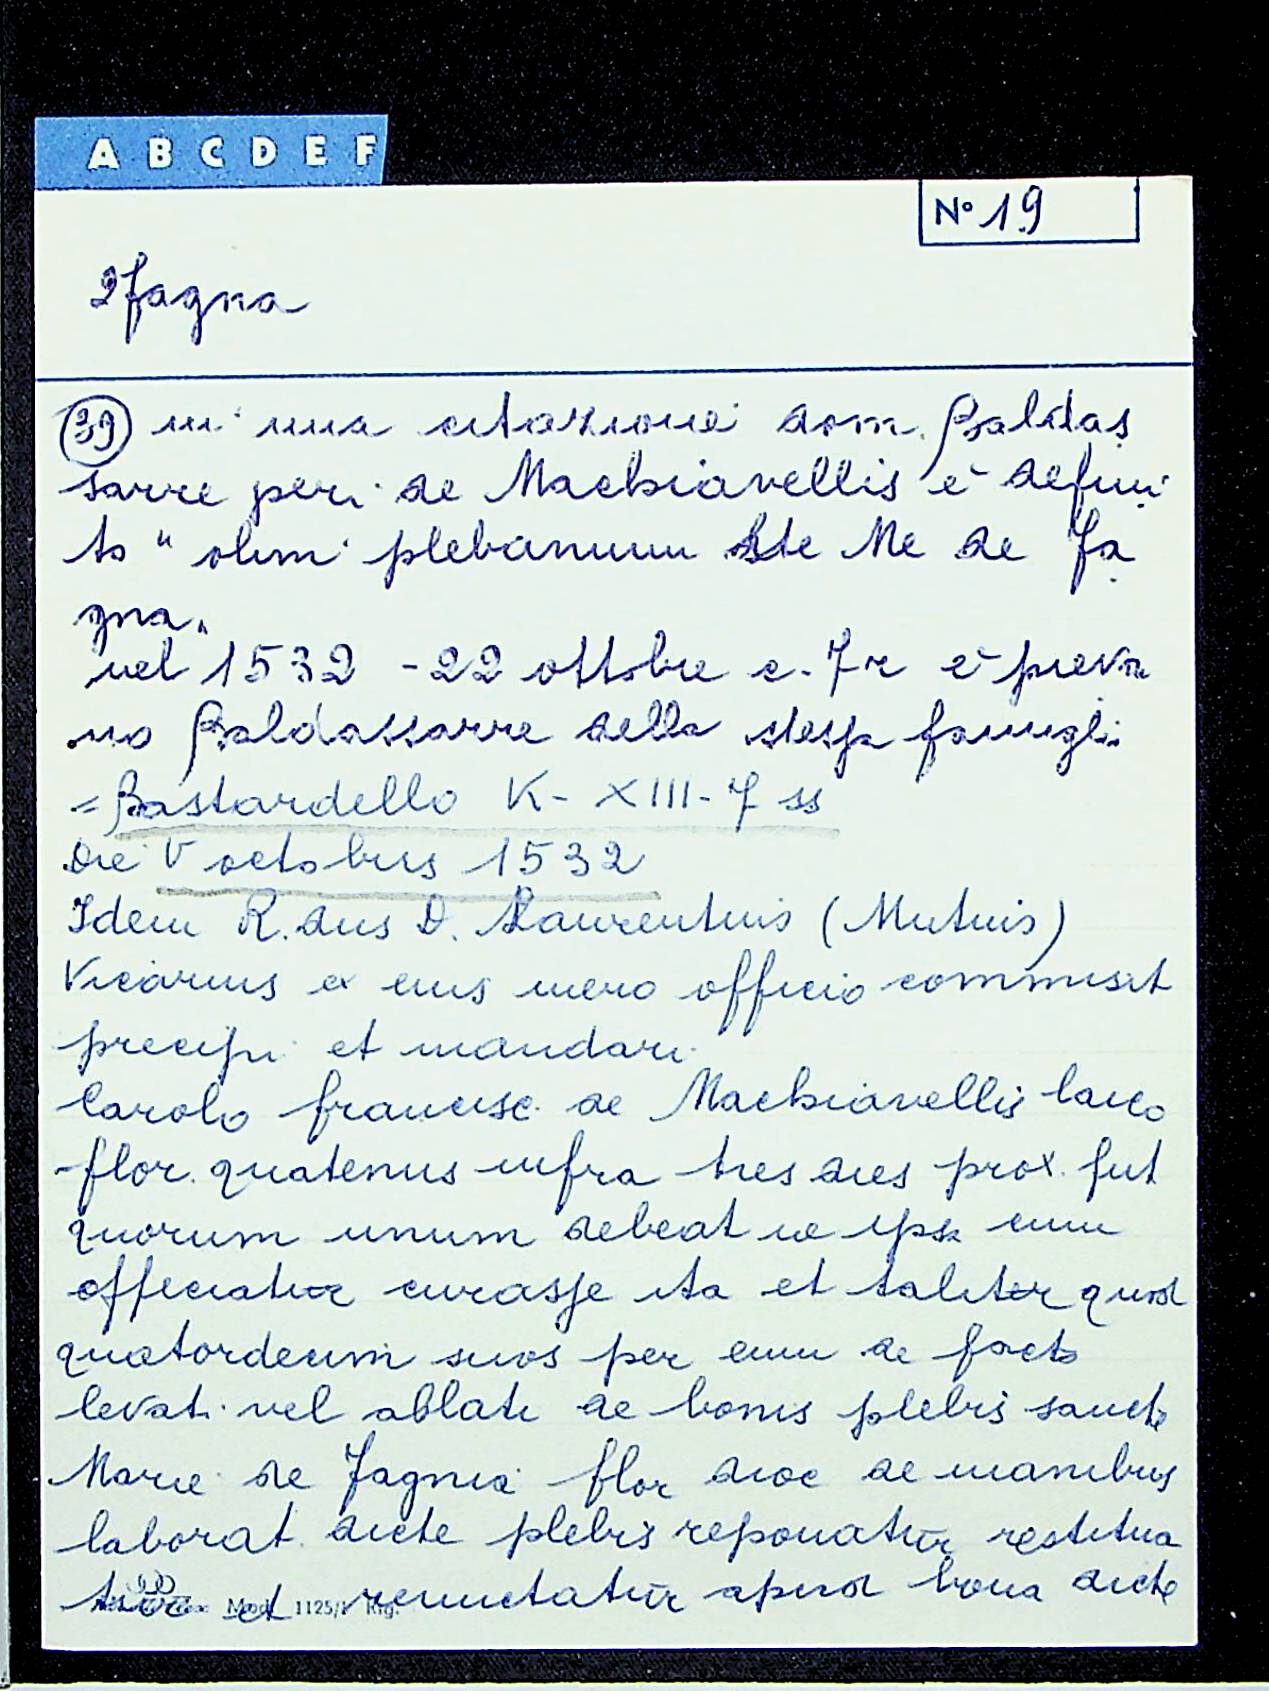 A B C D E F
N° 19
2 fagna
(39) in una citazione dom. Baldas
sarre peri de Machiavellis è defini
to " olim plebanum Ste Me de Fa
gna "
nel 1532 - 22 ottobre c. 7r è pieva
no Baldassarre della stessa famigli
= Bastardello K - XIII - 7 ss
Die V octobris 1532
Idem R. dus D. Laurentius (Mutuis)
Vicarius ex eius mero officio commisit
precipi et mandari
Carolo francisc. de Machiavellis laico
flor. quatenus infra tres dies prox. fut
quorum unum debeat ce ipse eum
officiatur curasse ita et taliter quod
quatordecim suos per eum de facto
levati vel ablati de bonis plebis sancte
Marie de Fagnia flor dioc de manibus
laborat. dicte plebis reponatur restitua
tur et remictatur apud bona dicte
Mod. 1125/1 Rig.